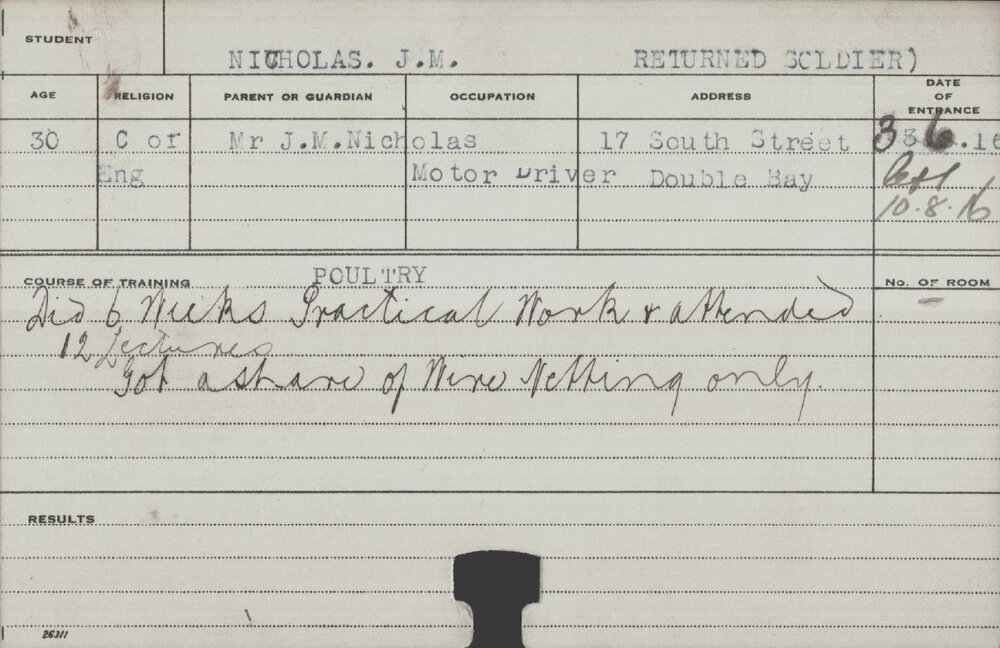 STUDENT
NICHOLAS. J.M. RETURNED SOLDIER)
AGE RELIGION PARENT OR GUARDIAN OCCUPATION ADDRESS DATE OF ENTRANCE
30 C of Mr J.M.Nicholas 17 South Street 3 6.16
Eng Motor Driver Double Bay
10.8.16
COURSE OF TRAINING POULTRY No. OF ROOM
Did 6 Weeks Practical Work & attended
12 Lectures
Got a share of Wire Netting only.
RESULTS
26311